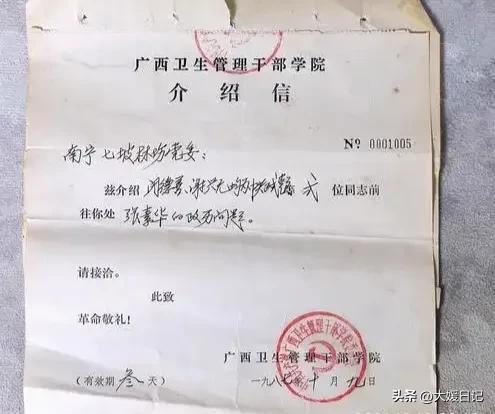 广西卫生管理干部学院
介绍信
Nº 0001005
南宁七坡林场党委:
兹介绍 位同志前
往你处 张嘉华的政历问题。
请接洽。
此致
革命敬礼!
广西卫生管理干部学院
(有效期 叁 天)
一九八七年十月九日
头条 @大媛日记